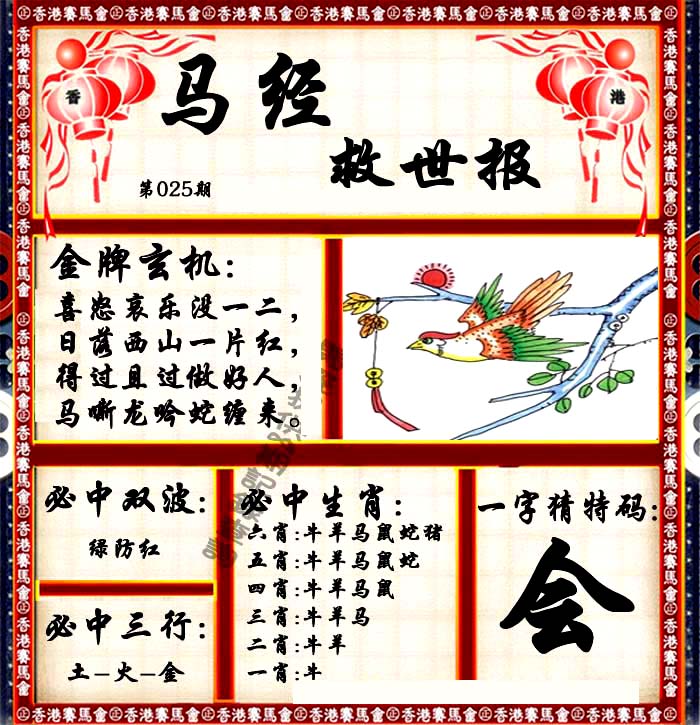 香港賽馬會㊣香港賽馬會㊣香港賽馬會㊣香港賽馬會㊣香港賽馬會㊣香港賽馬會㊣香港賽馬會
香
港
马经
救世报
第025期
金牌玄机：
喜怒哀乐没一二，
日落西山一片红，
得过且过做好人，
马嘶龙吟蛇缠来。
必中双波：
绿防红
必中三行：
土-火-金
必中生肖：
六肖：牛羊马鼠蛇猪
五肖：牛羊马鼠蛇
四肖：牛羊马鼠
三肖：牛羊马
二肖：牛羊
一肖：牛
一字猜特码：
会